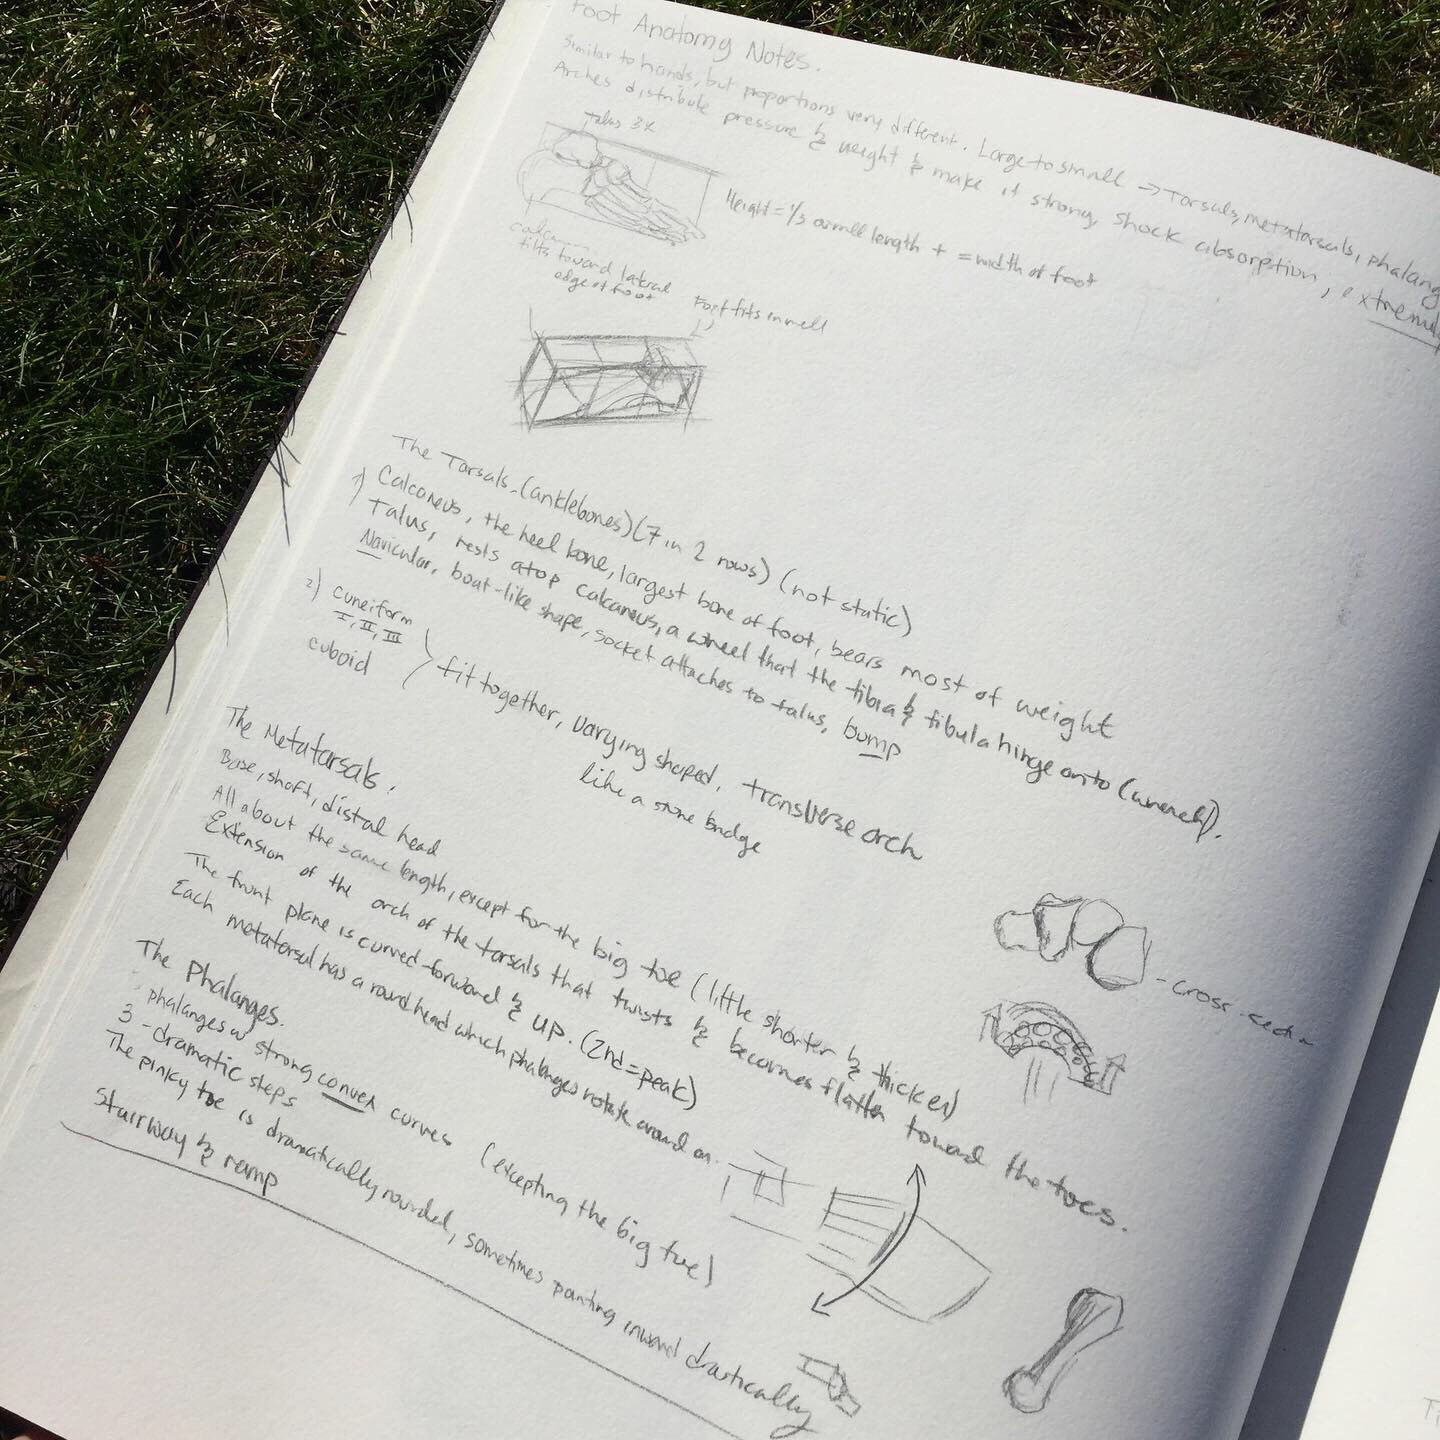 Foot Anatomy Notes.
Similar to hands, but proportions very different. Large to small → Tarsals, metatarsals, phalang
Arches distribute pressure & weight & make it strong, shock absorption,
talus 3x
Height = 1/3 overall length + = width of foot
tilts toward lateral
edge of foot
Foot fits in well
The Tarsals. (anklebones) (7 in 2 rows) (not static)
1) Calcaneus, the heel bone, largest bone of foot, bears most of weight
Talus, rests atop calcaneus, a wheel that the tibia & fibula hinge onto (wrench).
Navicular, boat-like shape, socket attaches to talus, bump
2) cuneiform
I, II, III
cuboid
fit together, varying shaped, transverse arch
like a stone bridge
The Metatarsals.
Base, shaft, distal head
All about the same length, except for the big toe (little shorter & thicker)
Extension of the arch of the tarsals that twists & becomes flatter toward the toes.
The front plane is curved forward & up. (2nd = peak)
Each metatarsal has a round head which phalanges rotate around on.
- cross-section
The Phalanges.
phalanges w strong convex curves (excepting the big toe)
3 - dramatic steps
The pinky toe is dramatically rounded, sometimes pointing inward drastically
Stairway & ramp